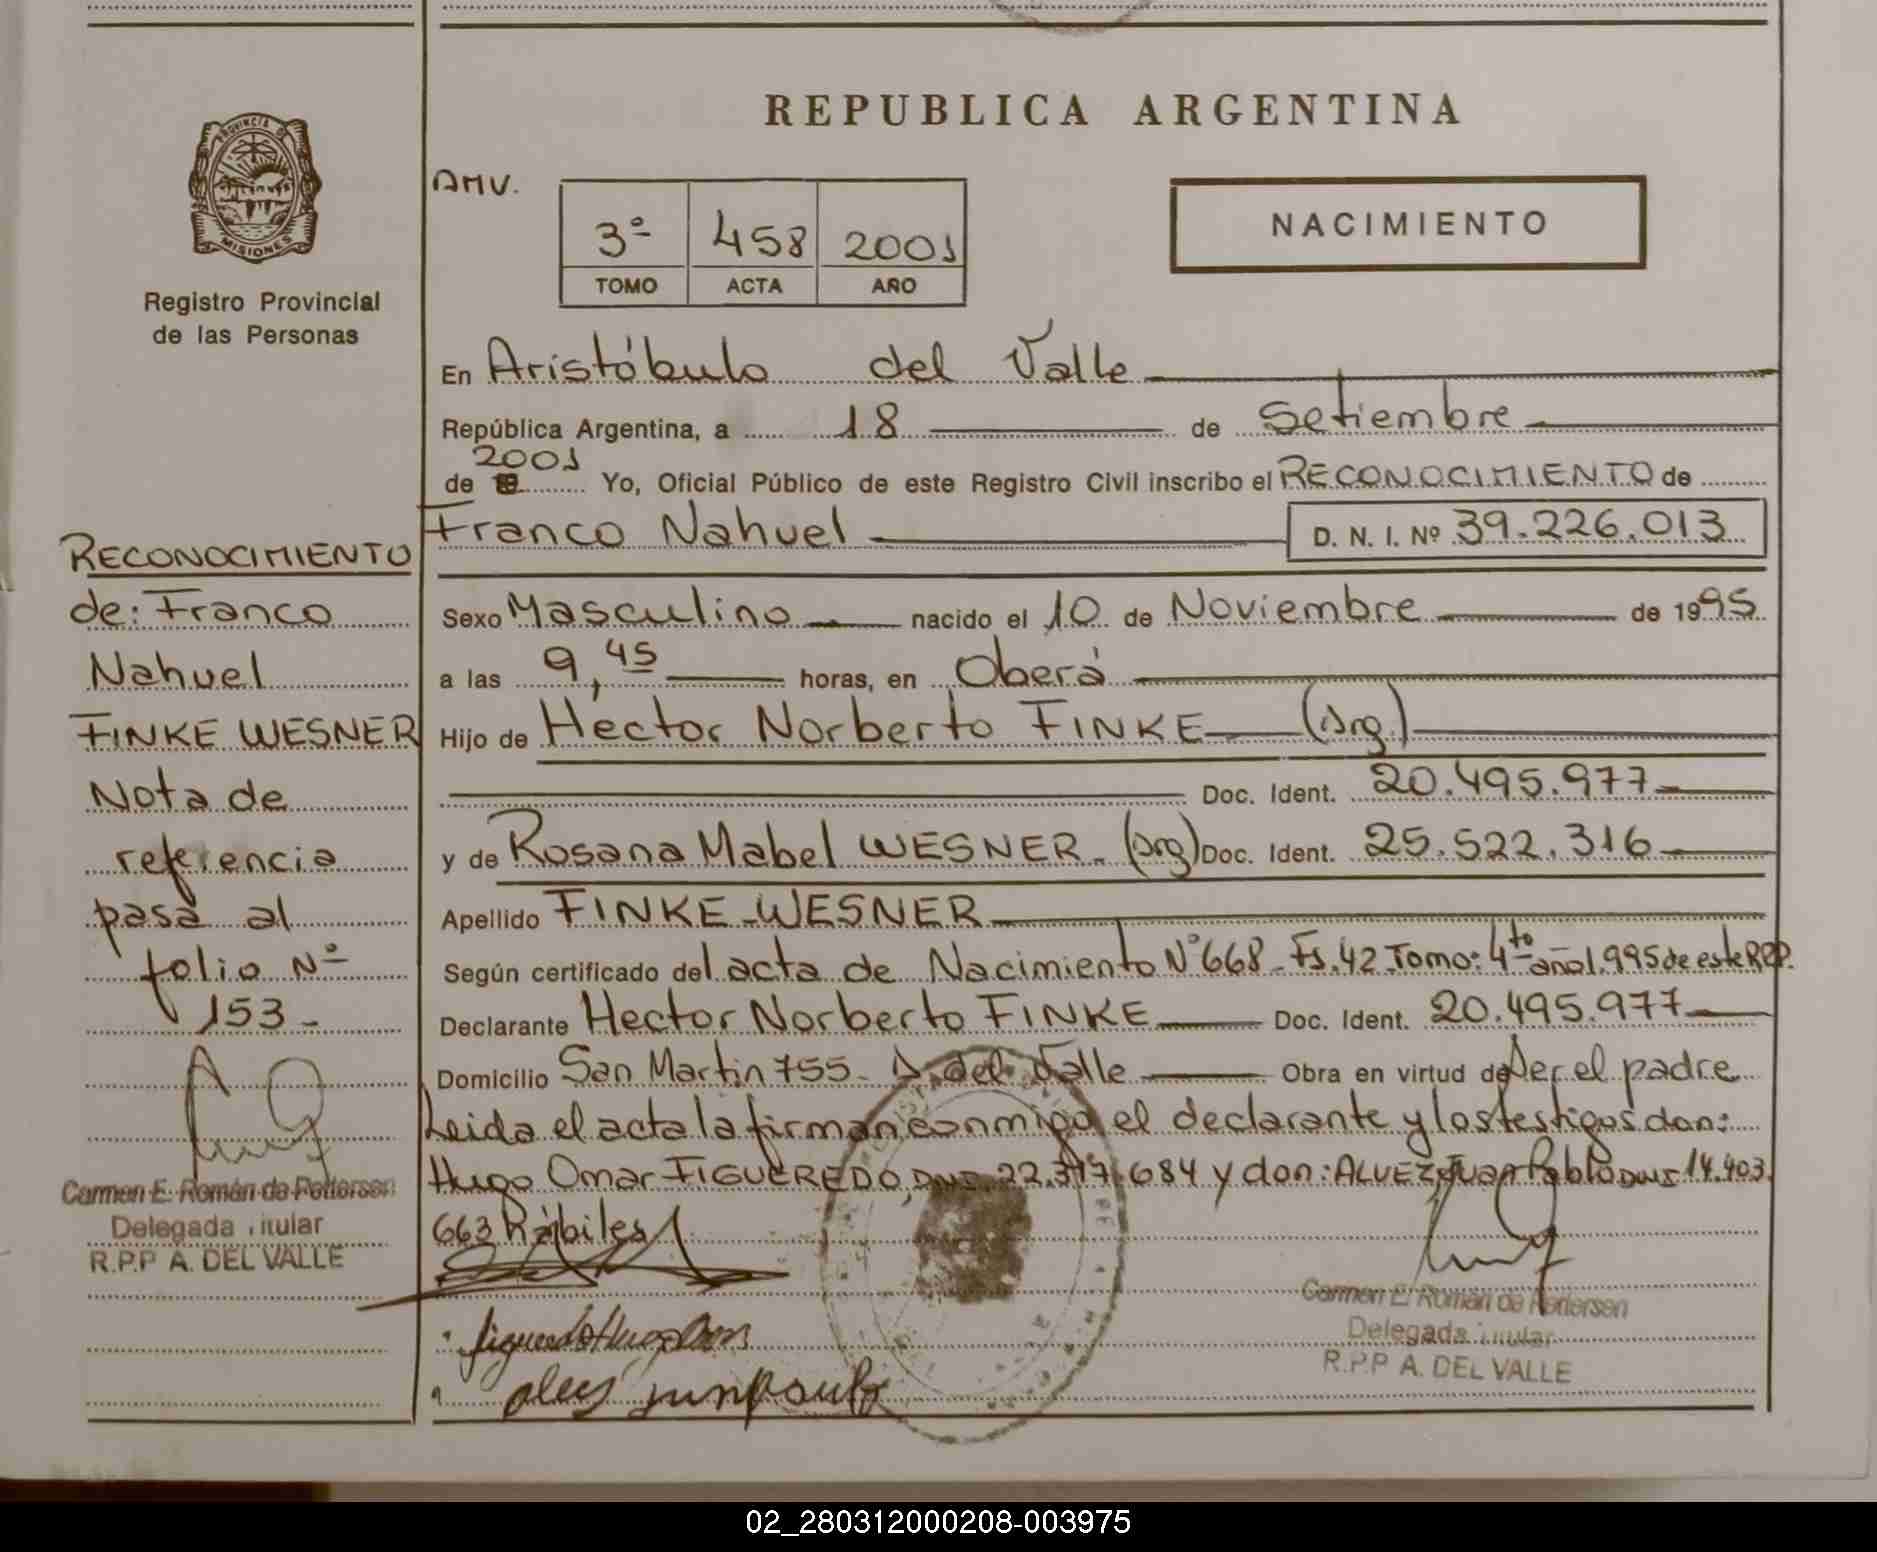 PROVINCIA DE
MISIONES
Registro Provincial
de las Personas
RECONOCIMIENTO
de: Franco
Nahuel
FINKE WESNER
Nota de
referencia
pasa al
folio Nº
153-
Carmen E. Román de Pettersen
Delegada Titular
R.P.P A. DEL VALLE
REPUBLICA ARGENTINA
AMV.
3º 458 2001
TOMO ACTA AÑO
NACIMIENTO
En Aristóbulo del Valle
República Argentina, a 18 de Setiembre
2001
de 19 Yo, Oficial Público de este Registro Civil inscribo el RECONOCIMIENTO de
Franco Nahuel D. N. I. Nº 39.226.013
Sexo Masculino nacido el 10 de Noviembre de 1995
a las 9,45 horas, en Oberá
Hijo de Héctor Norberto FINKE (Arg)
Doc. Ident. 20.495.977
y de Rosana Mabel WESNER. (Arg) Doc. Ident. 25.522.316
Apellido FINKE-WESNER
Según certificado del acta de Nacimiento Nº668-Fs.42-Tomo:4to año1.995 de este RPP.
Declarante Hector Norberto FINKE Doc. Ident. 20.495.977
Domicilio San Martin 755- A. del Valle Obra en virtud de Ser el padre
Leida el acta la firman conmigo el declarante y los testigos don:
Hugo Omar FIGUEREDO, DNI. 22.317.684 y don: ALVEZ Juan Pablo DNI 14.403.
663 hábiles
Figueredo Hugo Omar
Carmen E. Román de Pettersen
Delegada Titular
R.P.P A. DEL VALLE
02_280312000208-003975